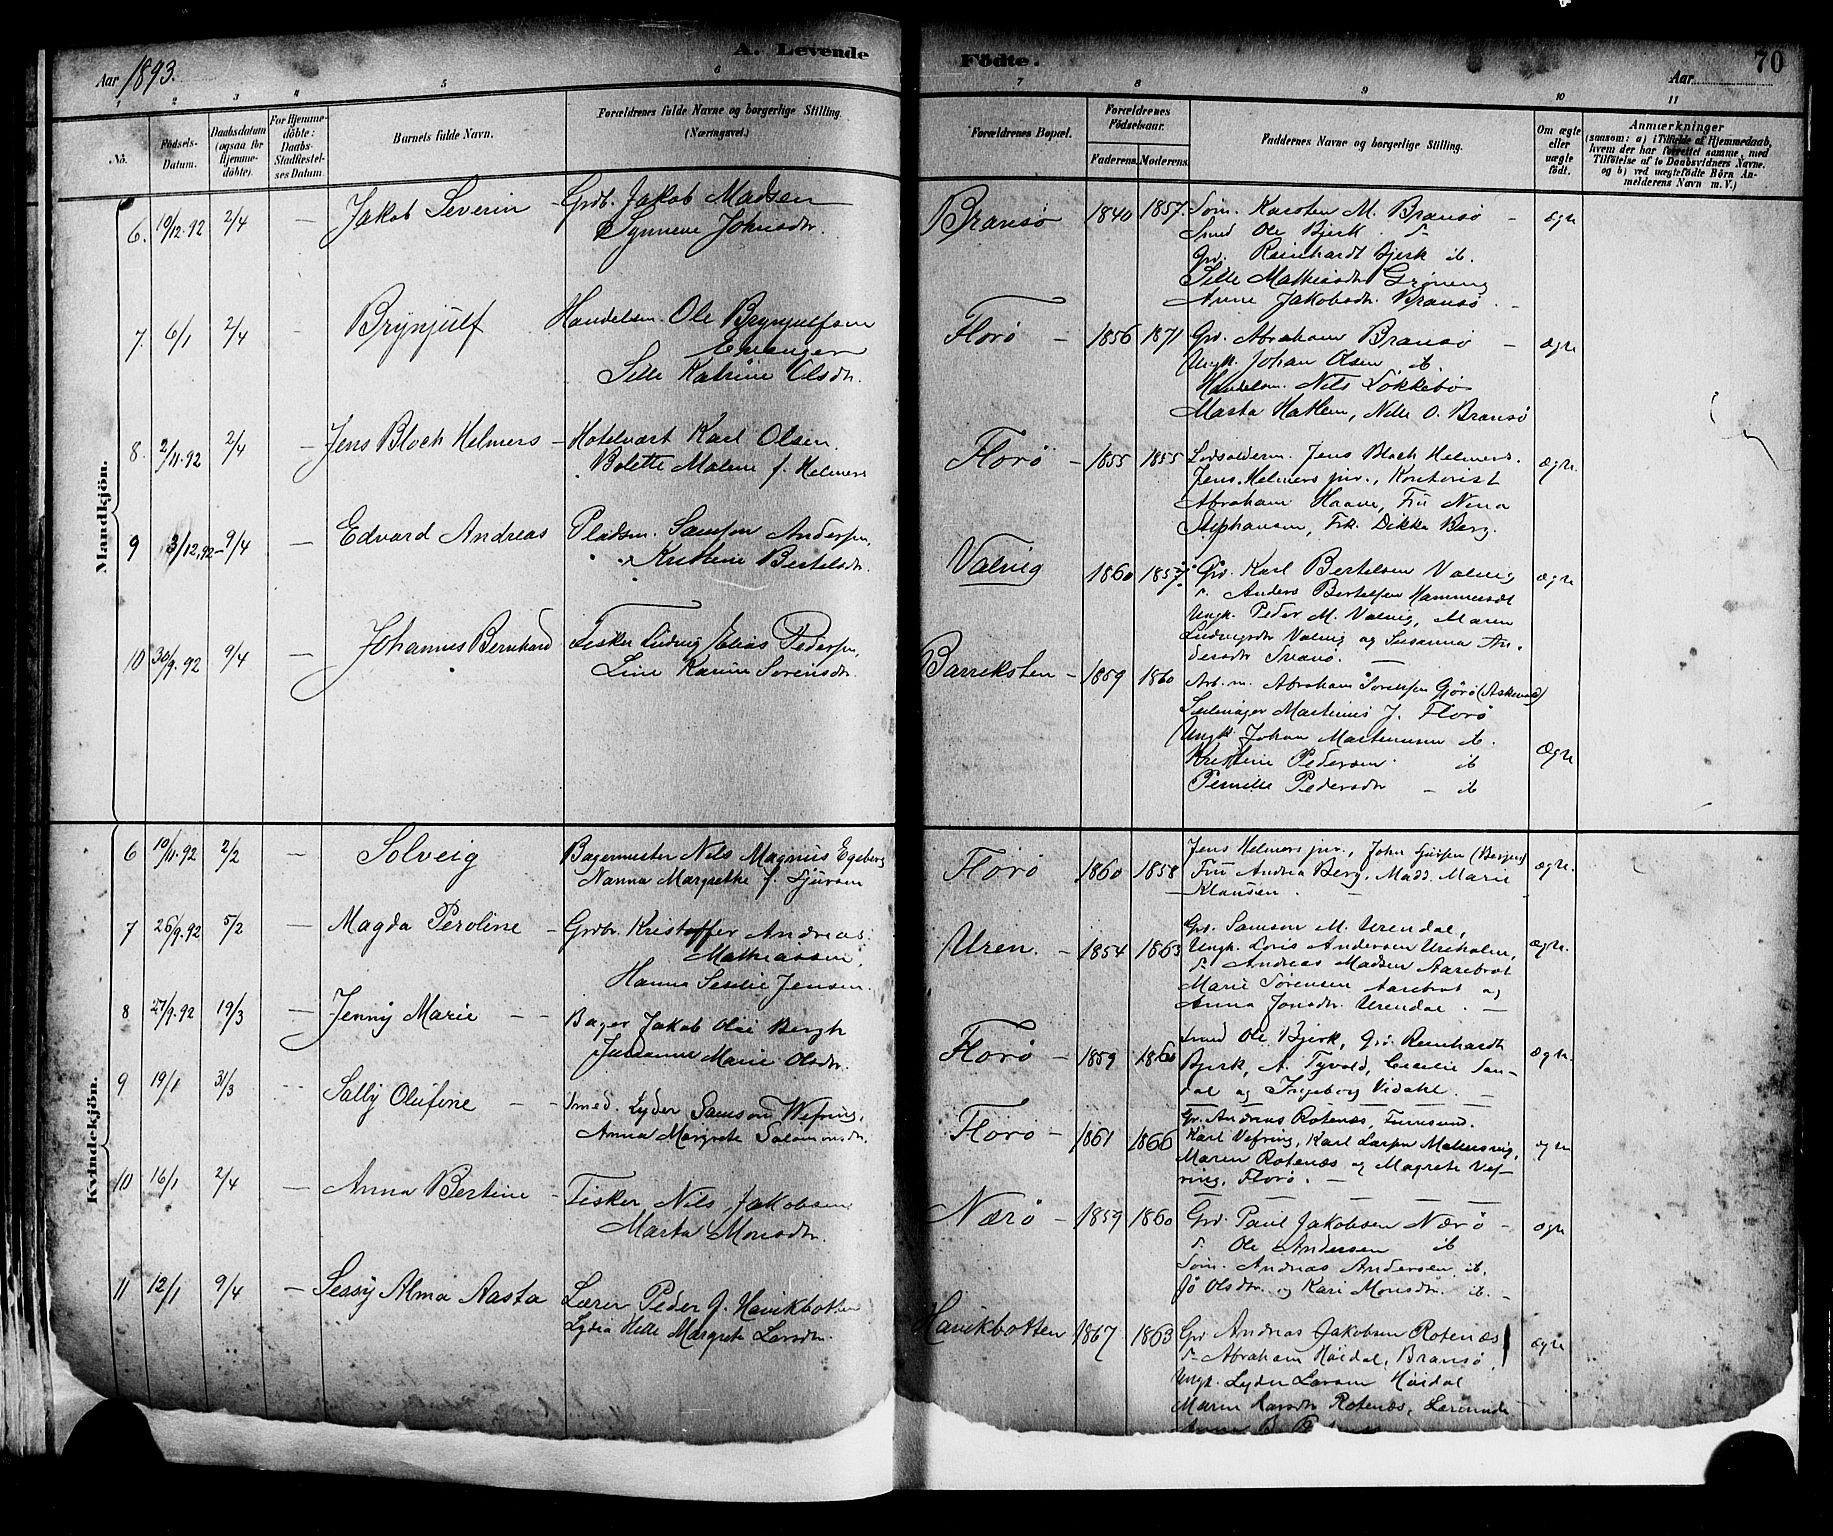 A. Levende Födte.
70
Aar 1893.
Aar
1 2 3 4 5 6 7 8 9 10 11
No.
Födsels-Datum.
Daabsdatum (ogsaa for Hjemme-döbte).
For Hjemme-döbte: Daabs-Stadfæstel-ses Datum.
Barnets fulde Navn.
Forældrenes fulde Navne og borgerlige Stilling. (Næringsvei.)
Forældrenes Bopæl.
Forældrenes Födselsaar.
Faderens. Moderens.
Faddernes Navne og borgerlige Stilling.
Om ægte eller uægte födt.
Anmærkninger
(saasom: a) i Tilfælde af Hjemmedaab, hvem der har forrettet samme, med Tilföielse af to Daabsvidners Navne. og b) ved uægtefödte Börn An-melderens Navn m. V.)
Mandkjön.
6. 19/12.92 2/4 — Jakob Severin — Grdb. Jakob Madsen
Synneve Johnsdtr.
Bransø 1840 1857. Söm. Karsten M. Bransø — ægte
Smed Ole Bjerk
Grd. Reinhardt Bjerk ib.
Sille Mathiasdtr Grøneng
Anne Jakobsdtr. Bransø. —
7. 6/1 2/4 — Brynjulf Handelsm. Ole Brynjulfsen
Sille Katrine Olsdtr.
Florø — 1856 1871 Grd. Abraham Bransø — ægte
Ungk. Johan Olsen ib.
Handelsm. Nils Løkkebø
Marta Hatlem, Nille O. Bransø
8. 2/11.92 2/4 — Jens Bloch Helmers — Hotelvært Karl Olsen
Bolette Maline f. Helmers
Florø — 1855 1855 Lodsolderm. Jens Bloch Helmers. ægte.
Jens Helmers jnr., Kontorist
Abraham Haave, Fru Nina
Stephansen, Frk. Dikka Berg.
9 3/12.92 — 9/4 — Edvard Andreas Pladsm. Samson Andersen,
Kristine Bertelsdtr.
Valvig 1860 1857 Grd. Karl Bertelsen Valvig ægte
" Anders Bertelsen Hammerset
Ungk. Peder M. Valvig, Maren
Ludvigsdtr Valvig og Susanna An-
dersdtr Svanø. —
10 30/9.92 9/4 — Johannes Bernhard Fisker Ludvig Elias Pedersen,
Line Karine Sørensdtr.
Barreksten — 1859 1860 Arb.m. Abraham Sørensen Gjørø (Askevold)
Seilmager Martinus J. Florø
Ungk. Johan Martinusen ib.
Kristine Pedersen ib ægte
Pernille Pedersdtr — ib
Kvindekjön.
6 10/11.92 2/2 — Solveig Bagermester Nils Magnus Egeberg
Nanna Margrethe f. Sjursen
Florø 1860 1858 Jens Helmers jnr., John Sjursen (Bergen) ægte.
Fru Andrea Berg, Mads. Marie
Klausen. —
7 26/9.92 5/2 — Magda Peroline — Grdbr. Kristoffer Andreas
Mathiassen,
Hanna Sesilie Jensen.
Uren. — 1854 1863 Grd. Samson M. Urendal, ægte.
Ungk. Loris Andersen Ureholm,
" Andreas Madsen Aarebrot
Marie Sørensen Aarebrot og
Anna Jonsdtr. Urendal. —
8 27/9.92 19/3 — Jenny Marie — — Bager Jakob Olai Bergh
Susanne Marie Olsdtr.
Florø — 1859 1860 Smed Ole Bjerk, Grd Reinhardt ægte.
Bjerk, A. Tyvold, Cecilie San-
dal og Ingeborg Vidahl. —
9 19/1 31/3 — Sally Olufine — — Smed. Lyder Samson Wefring,
Anna Margrete Salomonsdtr.
Florø — 1861 1866 Gr. Andreas Rotenæs, Furusund. ægte
Karl Vefring, Karl Larsen Malmsvig,
Maren Rotenæs og Magrete Vef-
ring, Florø. —
10 16/1 2/4 — Anna Bertine — Fisker Nils Jakobsen
Marta Monsdtr.
Nærø — 1859 1860 Grd. Paul Jakobsen Nærø — ægte
" Ole Andersen ib
Söm. Andreas Andersen ib.
Jø Olsdtr. og Kari Monsdtr. ib. —
11 12/1 9/4 — Sessy Alma Aasta Lærer Peder J. Havikbotten
Lydia Helle Margrete Larsdtr.
Havikbotten 1867 1863 Grd Andreas Jakobsen Rotenæs ægte
" Abraham Høidal, Bransø,
Ungk. Lyder Larsen Høidal
Maren Larsdtr Rotenæs, Lærerinde